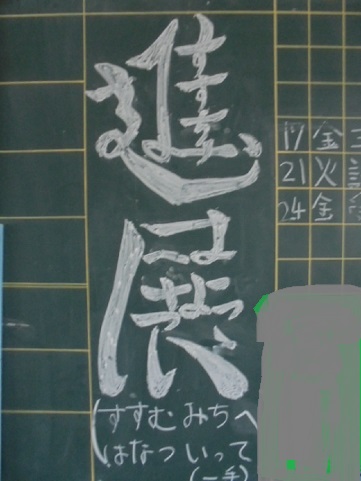 進展
(すすむ みちへ
はなつ いって
(一手)
17 金
21 火
24 金